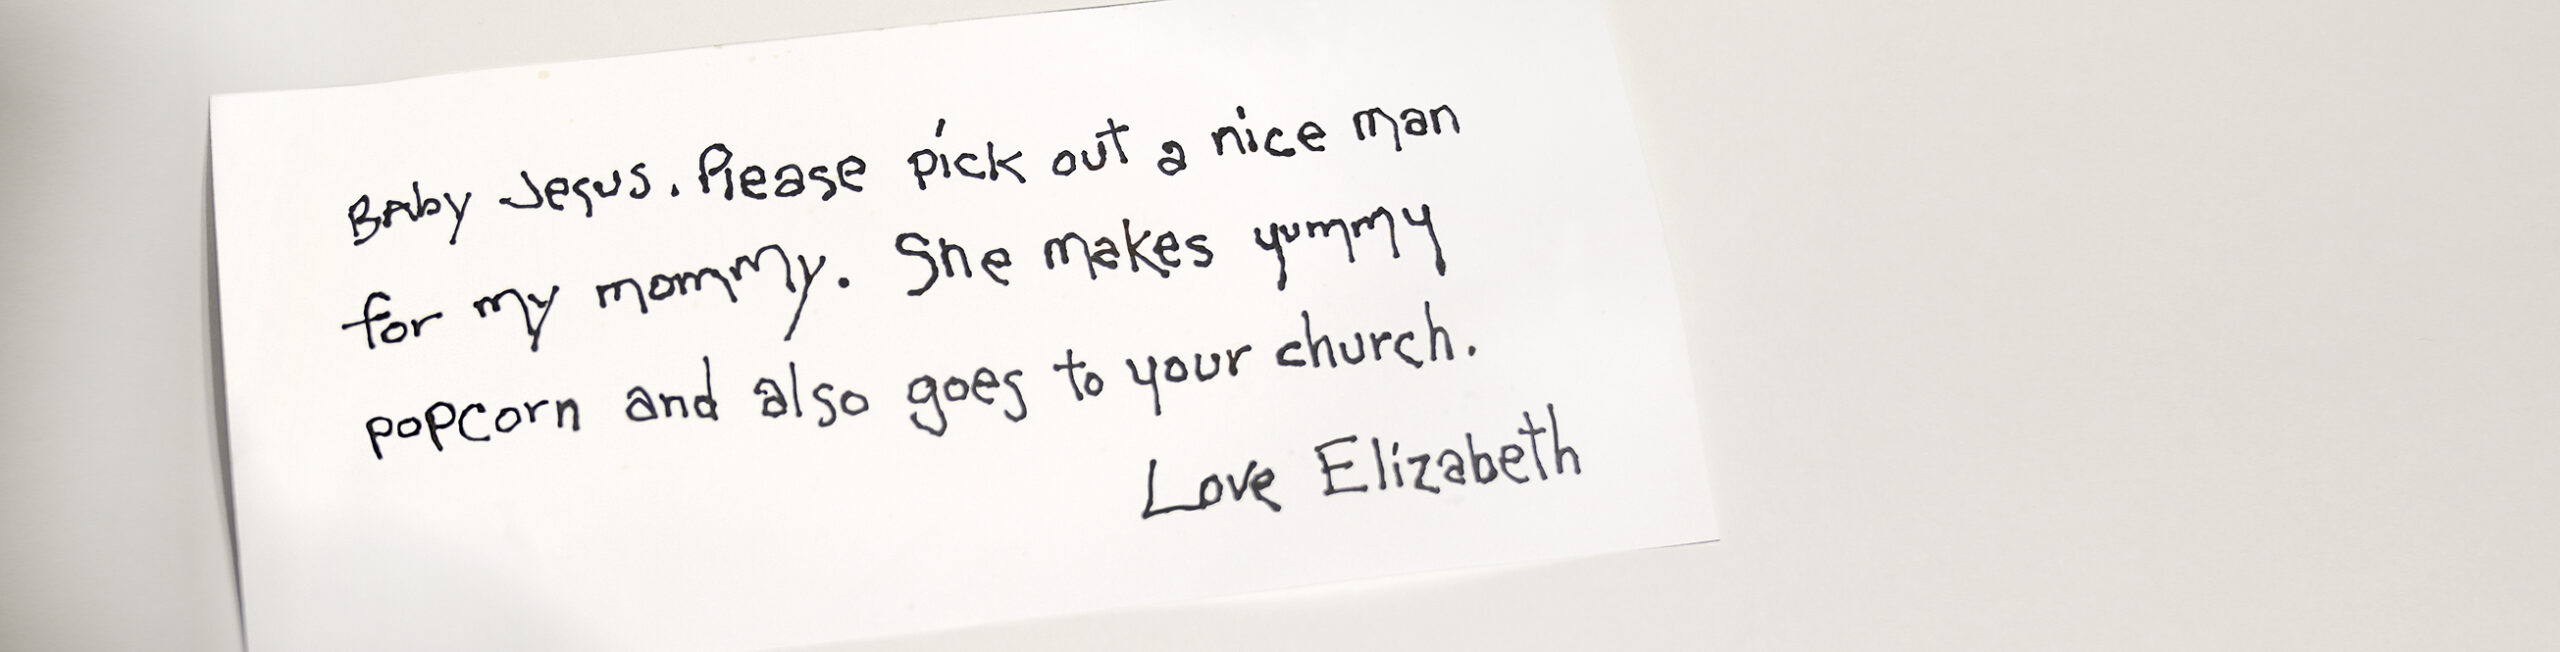 Baby Jesus. Please pick out a nice man
for my mommy. She makes yummy
popcorn and also goes to your church.
Love Elizabeth